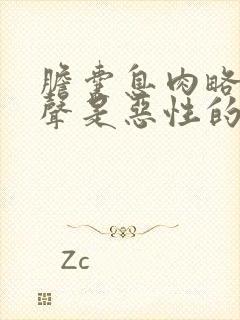 膽囊息肉略
聲是惡性的
Zc